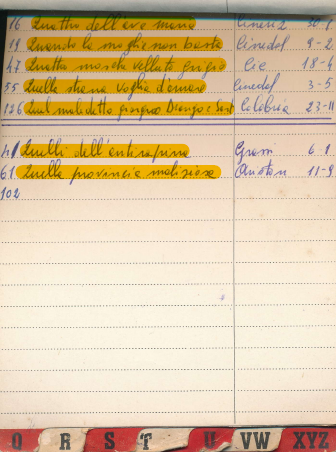 16 Quattro dell'ave maria Cineriz 30-1
19 Quando la moglie non basta Cinedel 9-2
47 Quattro mosche velluto grigio Cic 18-4
55 Quella strana voglia d'amare Cinedel 3-5
126 Quel maledetto giorno 23-11
41 Quelli dell'antirapina Gram 6-1
61 Quella provincia maliziosa 11-9
102
Q R S T U VW XYZ